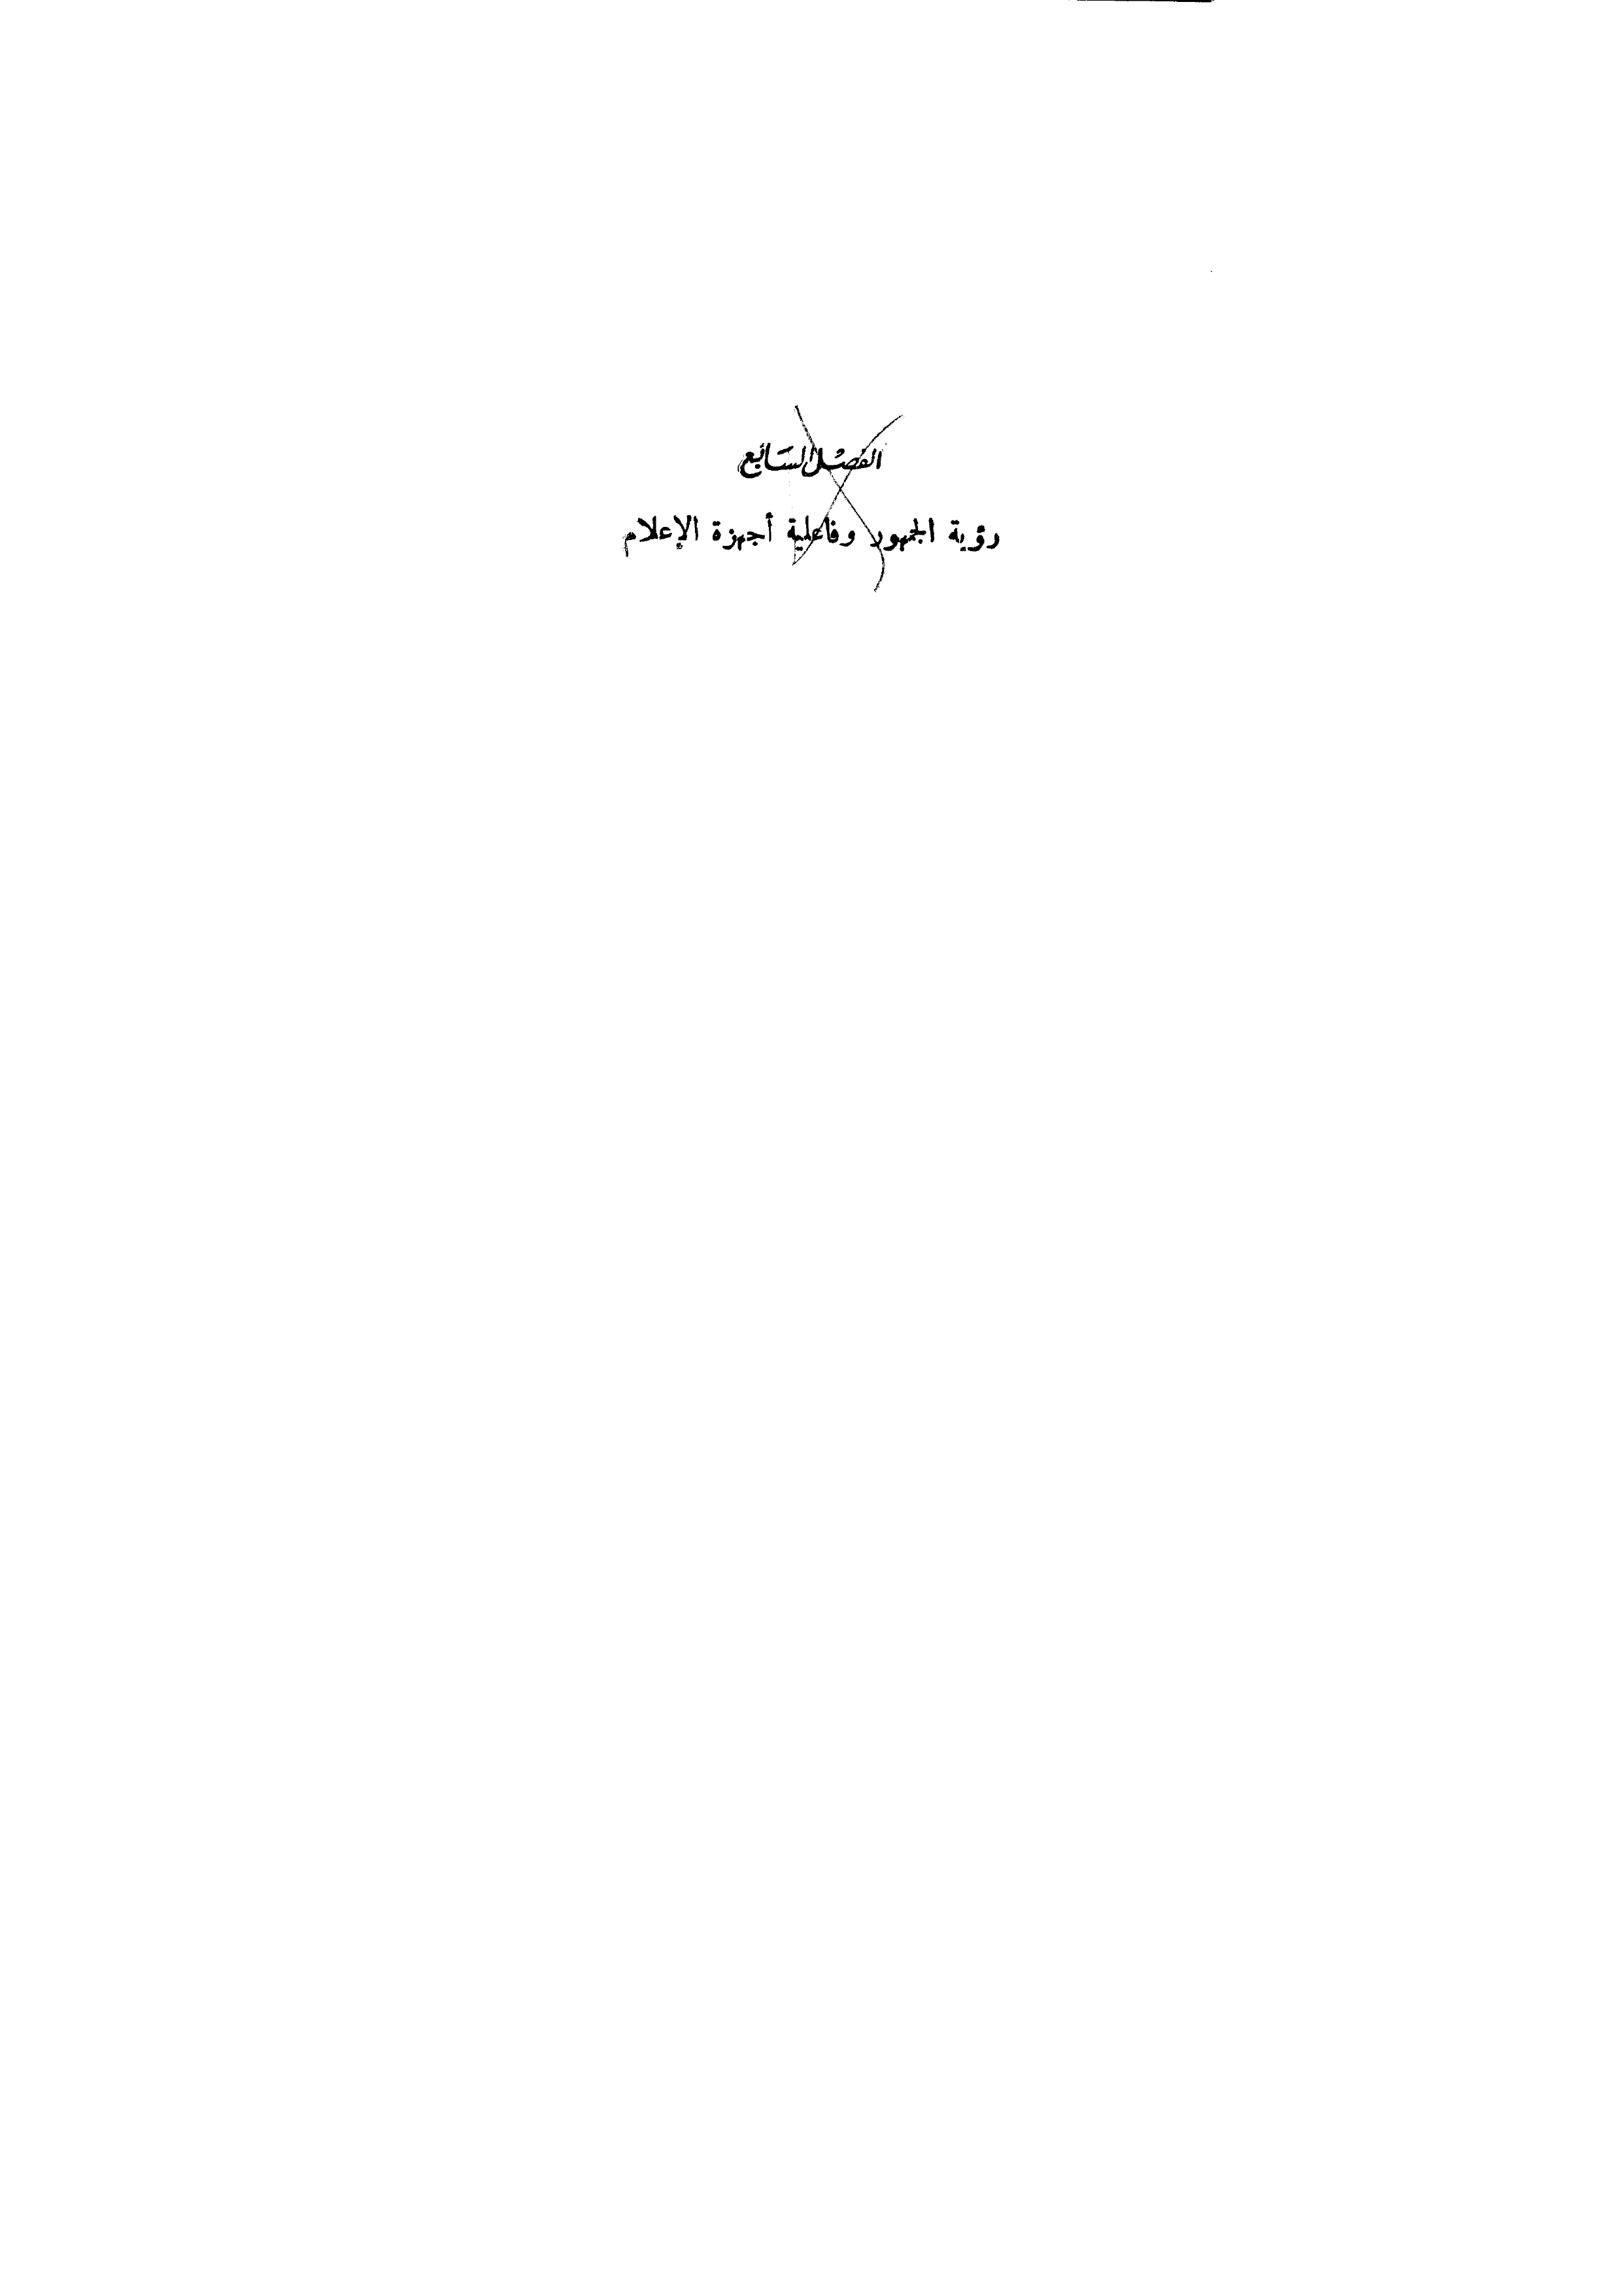 الفصل السابع
رؤية الجمهور وفاعلية أجهزة الإعلام